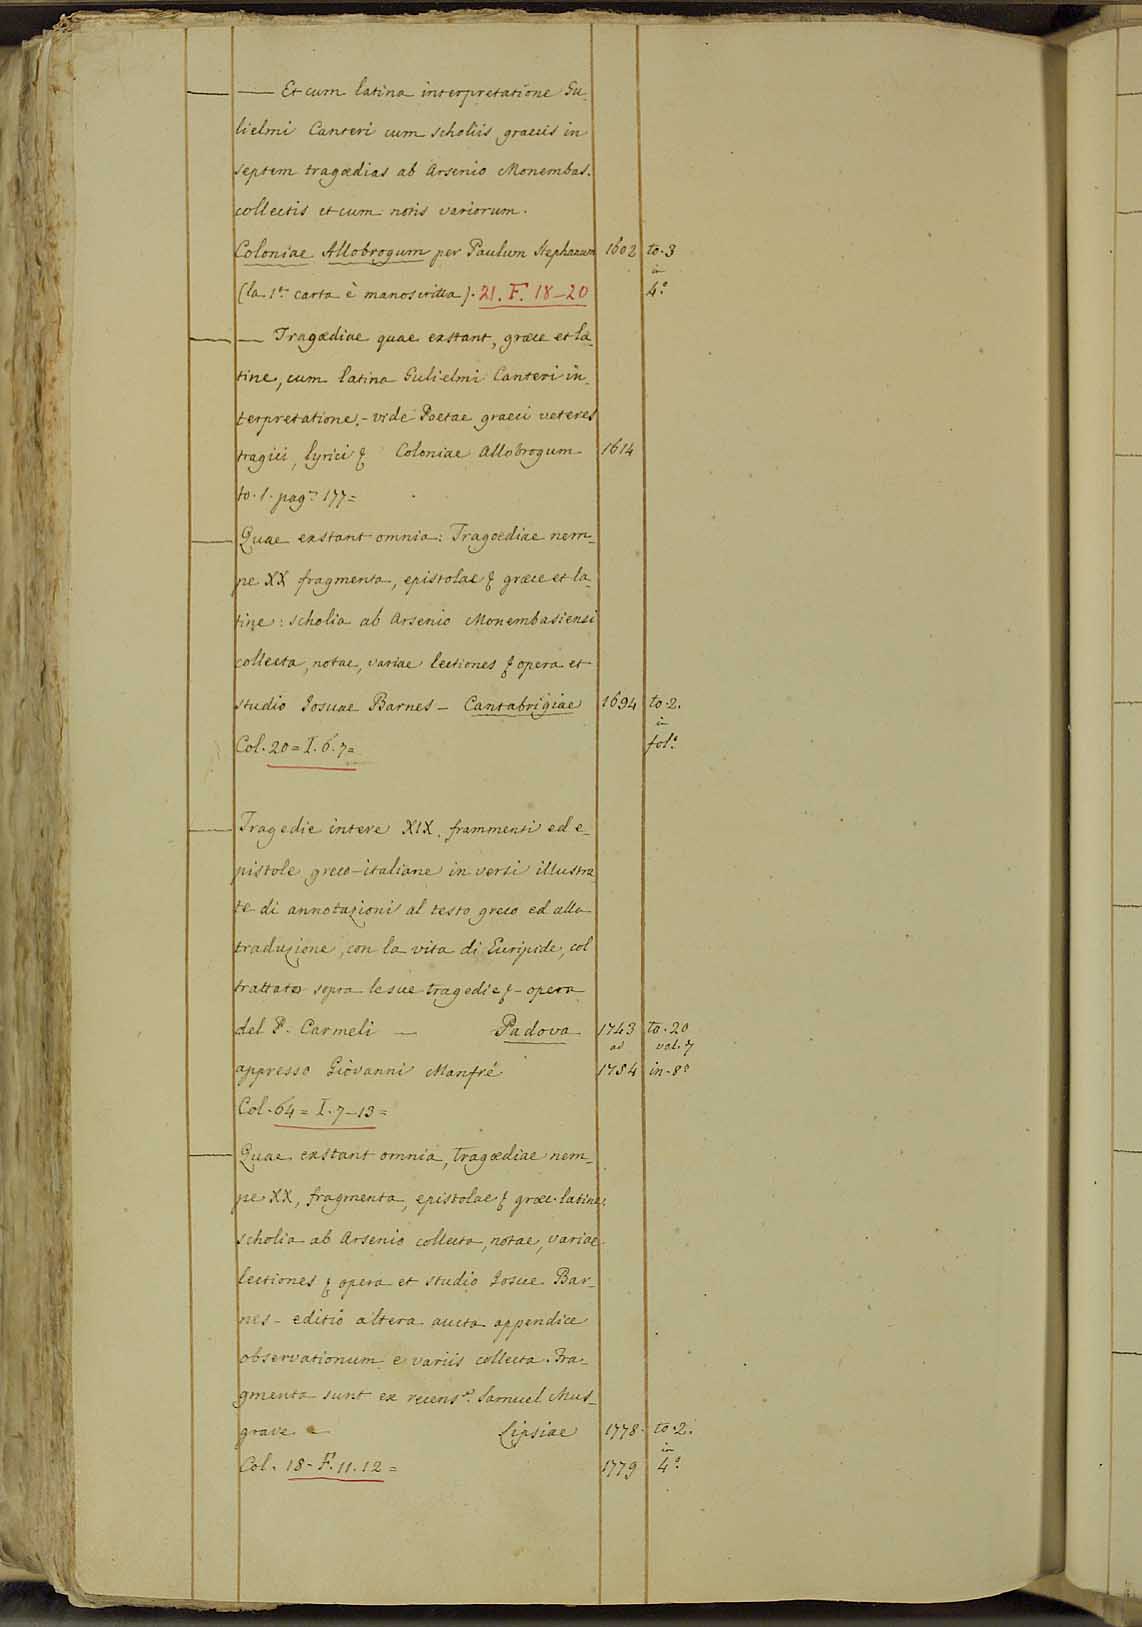 — — Et cum latina interpretatione Gu-
lielmi Canteri cum scholiis graecis in
septem tragœdias ab Arsenio Monembas.
collectis et cum notis variorum.
Coloniae Allobrogum per Paulum Stephanum 1602 to. 3
in
(la 1ª carta è manoscritta). 21. F. 18-20 4º
— — Tragœdiae quae exstant, græce et la-
tine, cum latina Gulielmi Canteri in-
terpretatione - vide Poetae graeci veteres
tragici, lyrici & Coloniae Allobrogum 1614
to. 1. pagª 177=
— Quae exstant omnia: Tragoediae nem-
pe XX fragmenta, epistolae & græce et la-
tine: scholia ab Arsenio Monembasiensi
collecta, notae, variae lectiones & opera et
studio Josuae Barnes - Cantabrigiae 1694 to. 2.
in
Col. 20 = I. 6. 7= folº
— Tragedie intere XIX. frammenti ed e-
pistole greco-italiane in versi illustra-
te di annotazioni al testo greco ed alla
traduzione, con la vita di Euripide, col
trattato sopra le sue tragedie & - opera
del P. Carmeli — Padova 1743 to. 20
ad vol. 7
appresso Giovanni Manfrè 1754 in-8º
Col. 64 = I. 7-13 =
— Quae exstant omnia, Tragœdiae nem-
pe XX, fragmenta, epistolae & græc. latine:
scholia ab Arsenio collecta, notae, variae
lectiones & opera et studio Josue Bar-
nes - editio altera aucta appendice
observationum e variis collecta. Fra-
gmenta sunt ex recensº. Samuel Mus-
grave - Lipsiae 1778- to. 2.
in
Col. 18- F. 11. 12 = 1779 4º